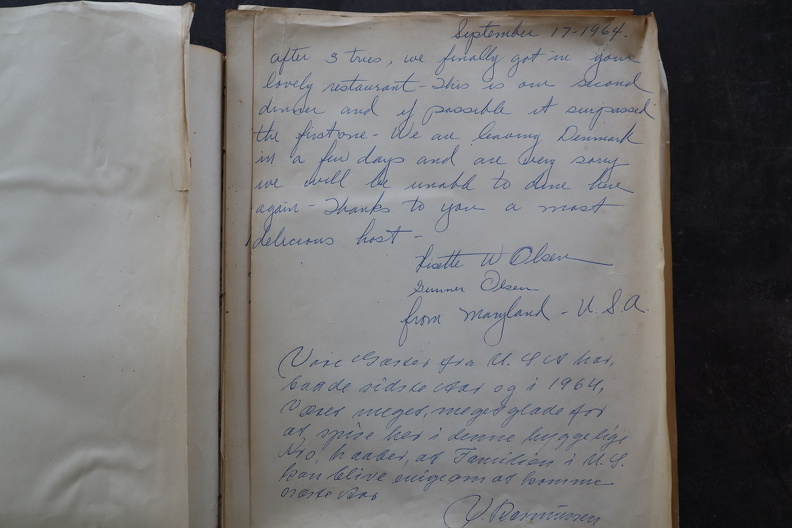 September 17-1964.
after 3 tries, we finally got in your
lovely restaurant - This is our second
dinner and if possible it surpassed
the first one - We are leaving Denmark
in a few days and are very sorry
we will be unable to dine here
again - Thanks to you a most
delicious host -
Lisette W Olsen
Gunner Olsen
from Maryland - U.S.A.
Vore Gæster fra U.S.A har,
baade sidste Aar og i 1964,
været meget, meget glade for
at spise her i denne hyggelige
Kro, haaber, at Familien i U.S.
kan blive enige om at komme
næste Aar
V. Rasmussen